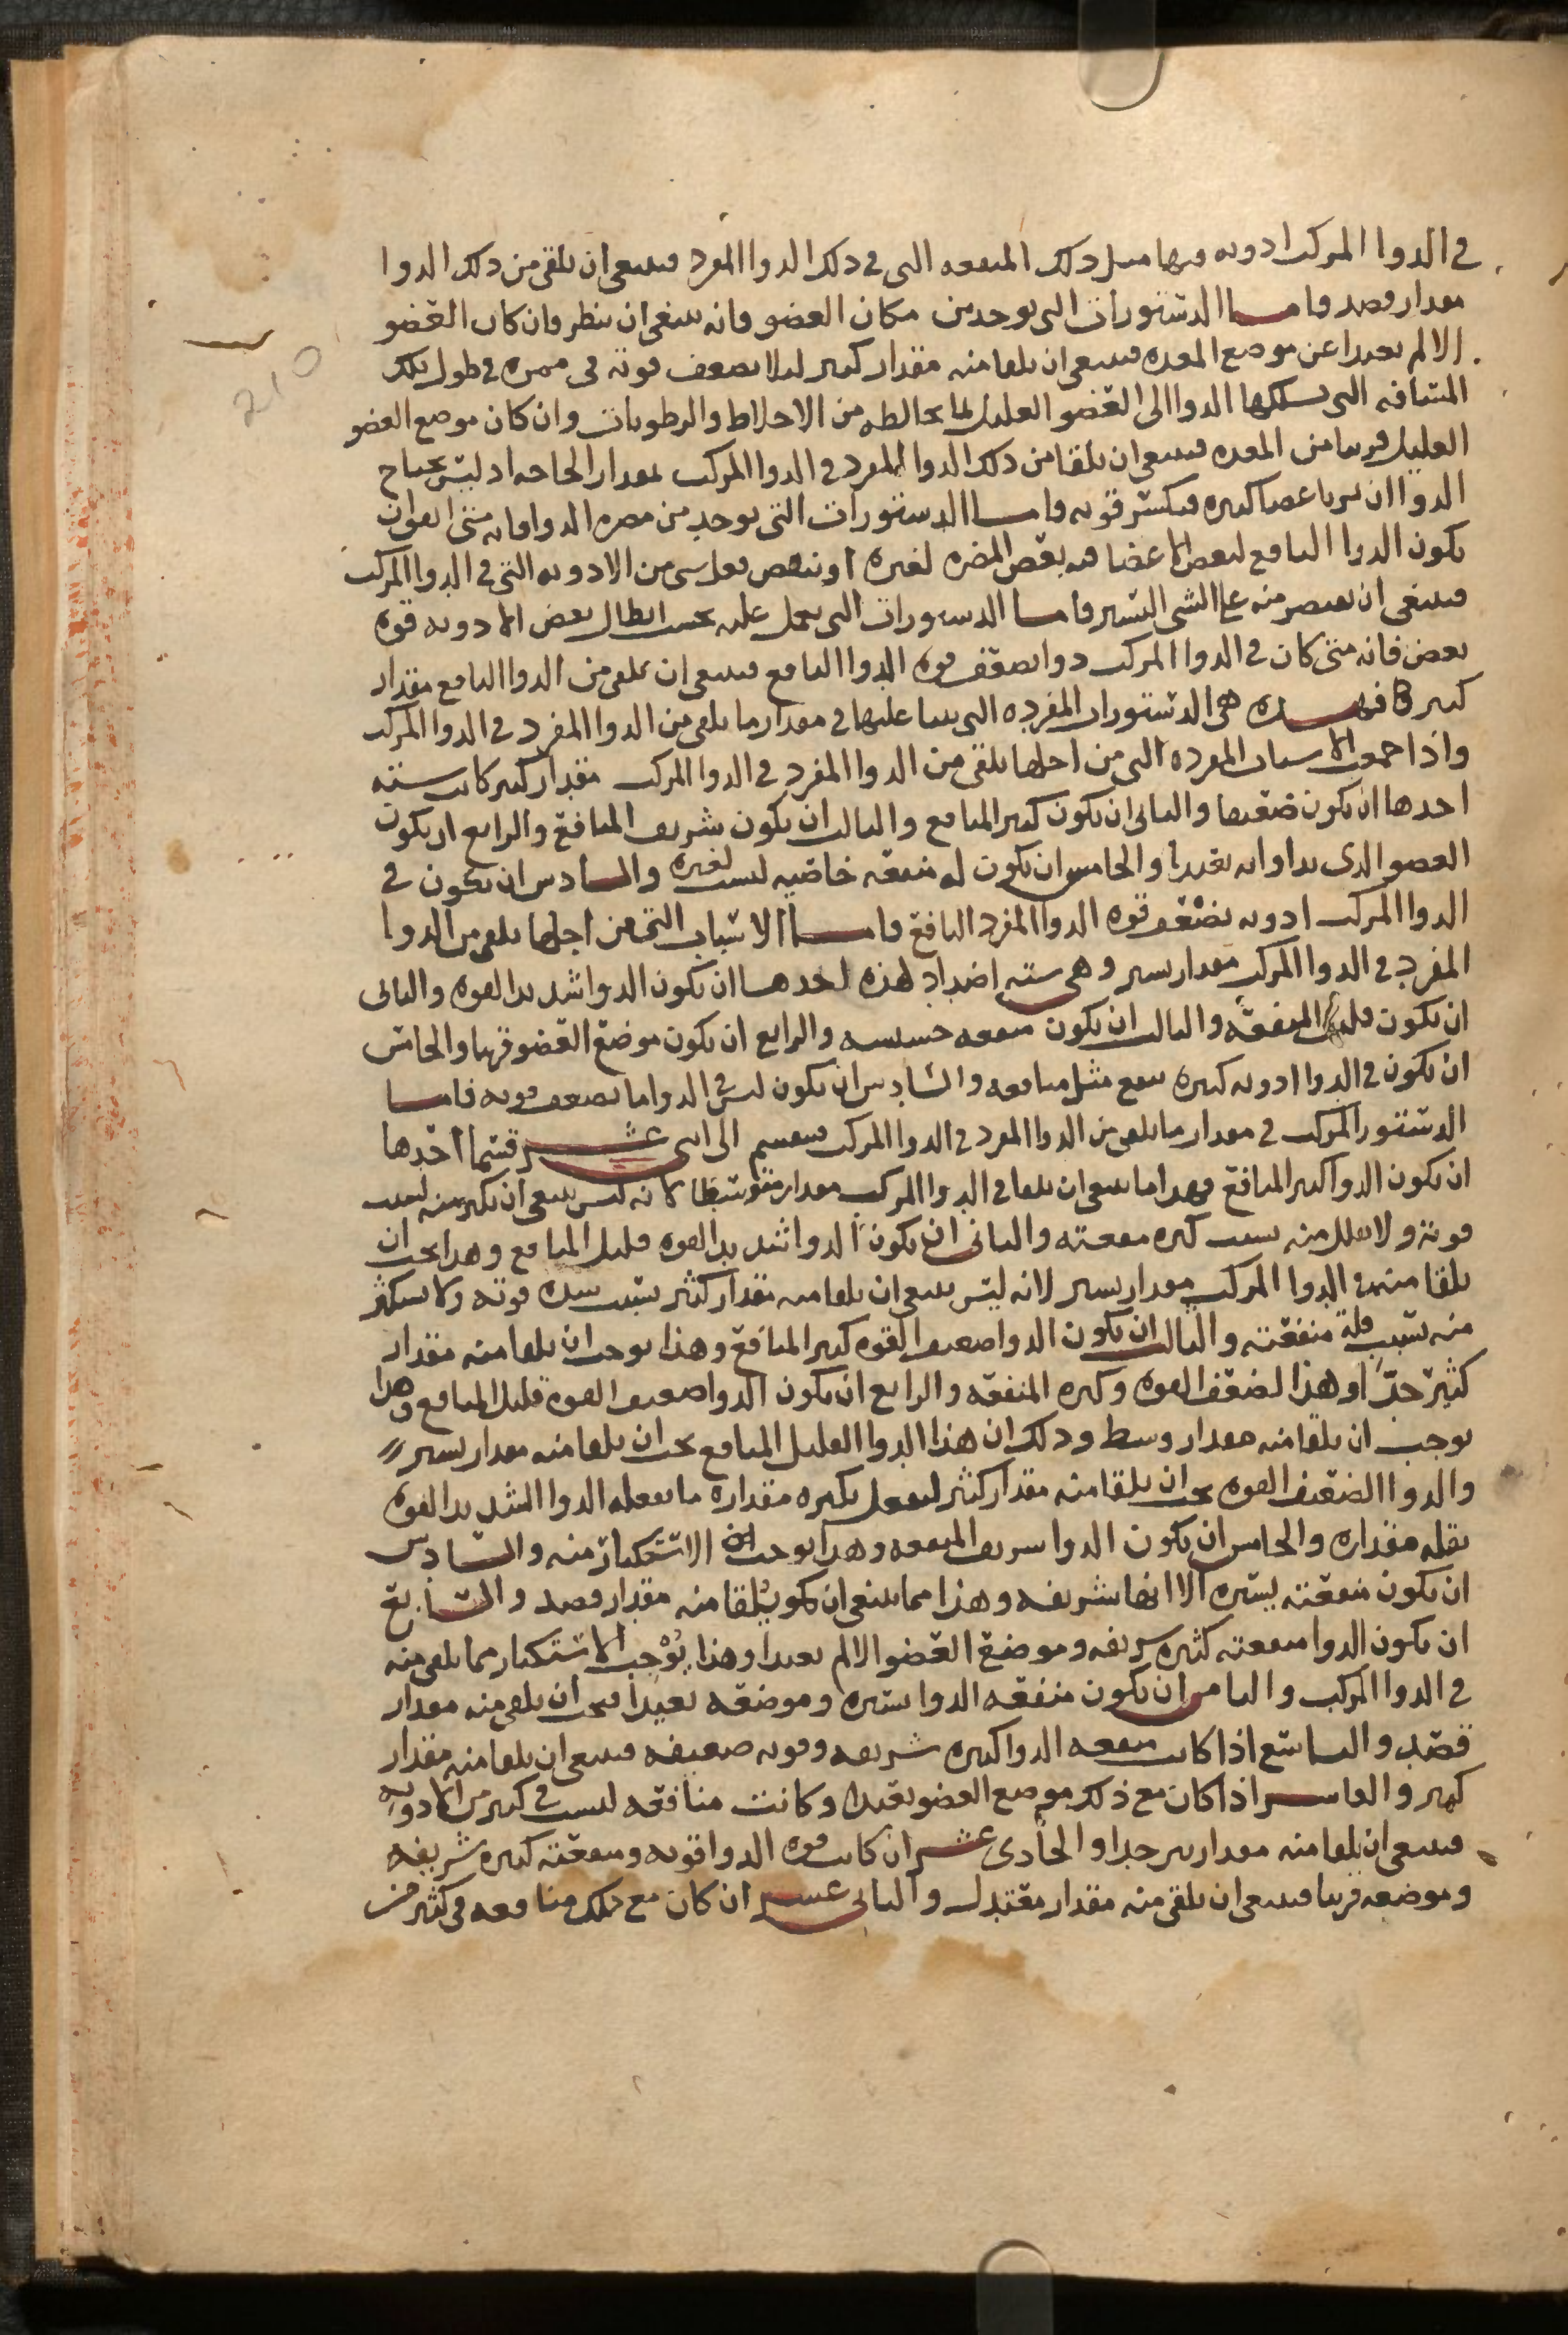 في الدوا المركب ادويه فيها مثل ذلك المنفعه التي في ذلك الدوا المفرد فينبغي ان يلقى من ذلك الدوا
مقدار قصد فاما الدستورات التي توجد من مكان العضو فانه ينبغي ان ينظر فان كان العضو
الالم بعيدا عن موضع المعده فينبغي ان يلقا منه مقدار كثير ليلا يضعف قوته في ممره في طول تلك
المسافه التي يسلكها الدوا الى العضو العليل لما يخالطه من الاخلاط والرطوبات وان كان موضع العضو
العليل قريبا من المعده فينبغي ان يلقا من ذلك الدوا المفرد في الدوا المركب بمقدار الحاجه اذ ليس يحتاج
الدوا ان يمر باعضا كثيره فيكسر قوته فاما الدستورات التي توجد من مضره الدوا فانه متى اتفق ان
يكون الدوا النافع لبعض الاعضا فيه بعض المضره لغيره او ينقص فعل شي من الادويه التي في الدوا المركب
فينبغي ان يقتصر منه على الشي اليسير فاما الدستورات التي يعمل عليه بحسب ابطال بعض الادويه قوة
بعض فانه متى كان في الدوا المركب دوا يضعف قوة الدوا النافع فينبغي ان يلقى من الدوا النافع مقدار
كثير فهذه هي الدستورات المفرده التي يبنا عليها في مقدار ما يلقى من الدوا المفرد في الدوا المركب
واذا جمعت الاسباب المفرده التي من اجلها يلقى من الدوا المفرد في الدوا المركب مقدار كثير كانت سته
احدها ان يكون ضعيفا والثاني ان يكون كثير المنافع والثالث ان يكون شريف المنافع والرابع ان يكون
العضو الذي يداوا به بعيدا والخامس ان يكون له منفعه خاصيه ليست لغيره والسادس ان يكون في
الدوا المركب ادويه تضعف قوة الدوا المفرد النافع فاما الاسباب التي من اجلها يلقى من الدوا
المفرد في الدوا المركب مقدار يسير وهي سته اضداد لهذه احدها ان يكون الدوا شديد القوه والثاني
ان يكون قليل المنفعه والثالث ان يكون منفعه خسيسه والرابع ان يكون موضع العضو قريبا والخامس
ان يكون في الدوا ادويه كثيره تنفع مثل منافعه والسادس ان يكون ليس في الدوا ما يضعف قوته فاما
الدستور المركب في مقدار ما يلقى من الدوا المفرد في الدوا المركب فينقسم الى اثنى عشر قسما احدها
ان يكون الدوا كثير المنافع وهذا ما ينبغي ان يلقا في الدوا المركب مقدار متوسطا لانه ليس ينبغي ان يكثر منه لسبب
قوته ولا يقلل منه بسبب كثره منفعته والثاني ان يكون الدوا شديد القوه قليل المنافع وهذا يجب ان
يلقا منه في الدوا المركب مقدار يسير لانه ليس ينبغي ان يلقا منه مقدار كثير بسبب شدة قوته ولا يستكثر
منه بسبب قلة منفعته والثالث ان يكون الدوا ضعيف القوه كثير المنافع وهذا يوجب ان يلقا منه مقدار
كثير جدا وهذا لضعف القوه وكثره المنفعه والرابع ان يكون الدوا ضعيف القوه قليل المنافع وهذا
يوجب ان يلقا منه مقدار وسط وذلك ان هذا الدوا القليل المنافع يجب ان يلقا منه مقدار يسير
والدوا الضعيف القوه يجب ان يلقا منه مقدار كثير ليفعل بكثره مقداره ما يفعله الدوا الشديد القوه
بقله مقداره والخامس ان يكون الدوا شريف المنفعه وهذا يوجب الاستكثار منه والسادس
ان يكون منفعته يسيره الا انها شريفه وهذا مما ينبغي ان يكون يلقا منه مقدار قصد والسابع
ان يكون الدوا منفعته كثيره شريفه وموضع العضو الالم بعيدا وهذا يوجب الاستكثار مما يلقى منه
في الدوا المركب والثامن ان يكون منفعه الدوا يسيره وموضعه بعيدا فيجب ان يلقى منه مقدار
قصد والتاسع اذا كانت منفعه الدوا كثيره شريفه وقوته ضعيفه فينبغي ان يلقا منه مقدار
كثير والعاشر اذا كان مع ذلك موضع العضو بعيدا وكانت منافعه ليست في كثير من الادويه
فينبغي ان يلقا منه مقدار كثير جدا والحادي عشر ان كانت قوة الدوا قويه ومنفعته كثيره شريفه
وموضعه قريبا فينبغي ان يلقى منه مقدار معتدل والثاني عشر ان كان مع ذلك منافعه في كثير من
210